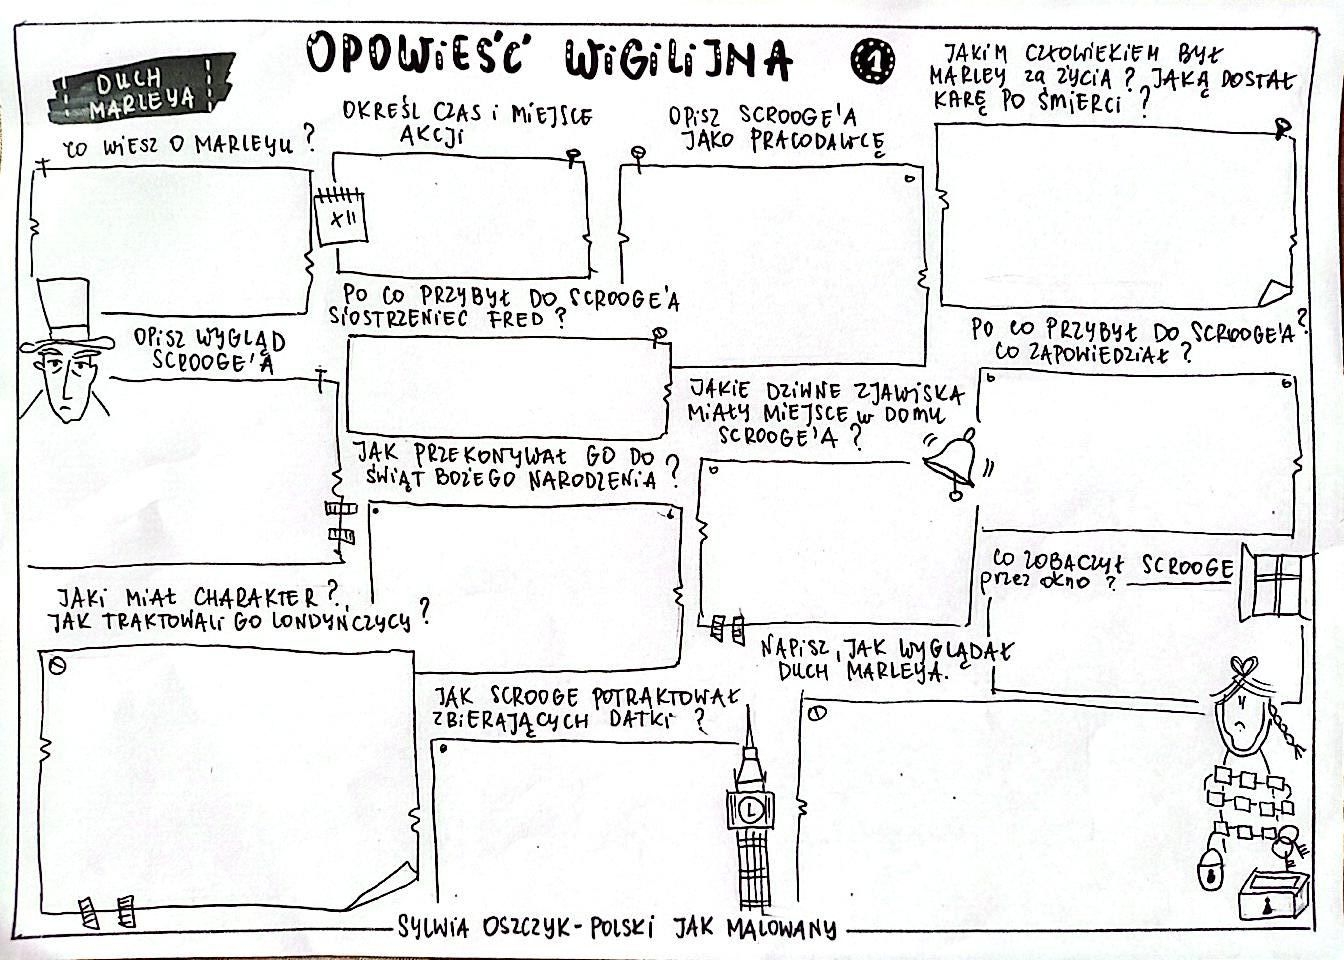 OPOWIEŚĆ WIGILIJNA 1
DUCH
MARLEYA
CO WIESZ O MARLEYU?
OKREŚL CZAS I MIEJSCE
AKCJI
XII
OPISZ SCROOGE'A
JAKO PRACODAWCĘ
JAKIM CZŁOWIEKIEM BYŁ
MARLEY ZA ŻYCIA? JAKĄ DOSTAŁ
KARĘ PO ŚMIERCI?
OPISZ WYGLĄD
SCROOGE'A
PO CO PRZYBYŁ DO SCROOGE'A
SIOSTRZENIEC FRED?
PO CO PRZYBYŁ DO SCROOGE'A?
CO ZAPOWIEDZIAŁ?
JAKIE DZIWNE ZJAWISKA
MIAŁY MIEJSCE W DOMU
SCROOGE'A?
JAK PRZEKONYWAŁ GO DO
ŚWIĄT BOŻEGO NARODZENIA?
CO ZOBACZYŁ SCROOGE
przez okno?
JAKI MIAŁ CHARAKTER?
JAK TRAKTOWALI GO LONDYŃCZYCY?
NAPISZ, JAK WYGLĄDAŁ
DUCH MARLEYA.
JAK SCROOGE POTRAKTOWAŁ
ZBIERAJĄCYCH DATKI?
SYLWIA OSZCZYK - POLSKI JAK MALOWANY